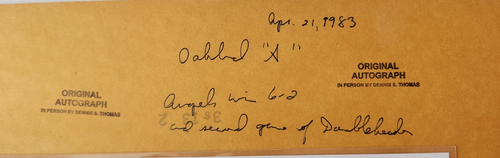 Apr. 21, 1983
Oakland "A"
ORIGINAL
AUTOGRAPH
IN PERSON BY DENNIS S. THOMAS
ORIGINAL
AUTOGRAPH
IN PERSON BY DENNIS S. THOMAS
Angels win 6-2
and second game of Doubleheader